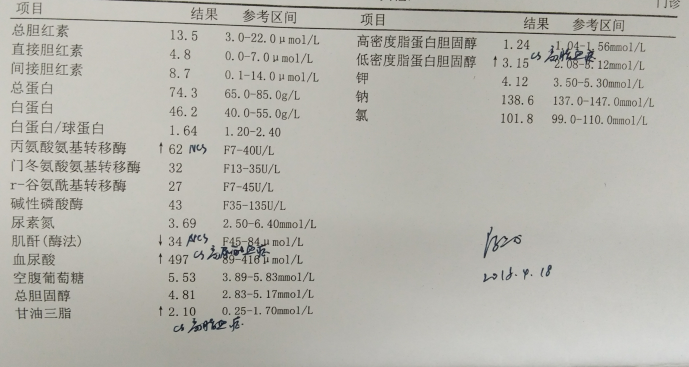 门诊
项目 结果 参考区间 项目 结果 参考区间
总胆红素 13.5 3.0-22.0μmol/L 高密度脂蛋白胆固醇 1.24 1.04-1.56mmol/L
直接胆红素 4.8 0.0-7.0μmol/L 低密度脂蛋白胆固醇 ↑ 3.15 2.08-3.12mmol/L CS 高脂血症
间接胆红素 8.7 0.1-14.0μmol/L 钾 4.12 3.50-5.30mmol/L
总蛋白 74.3 65.0-85.0g/L 钠 138.6 137.0-147.0mmol/L
白蛋白 46.2 40.0-55.0g/L 氯 101.8 99.0-110.0mmol/L
白蛋白/球蛋白 1.64 1.20-2.40
丙氨酸氨基转移酶 ↑ 62 NCS F7-40U/L
门冬氨酸氨基转移酶 32 F13-35U/L
r-谷氨酰基转移酶 27 F7-45U/L
碱性磷酸酶 43 F35-135U/L
尿素氮 3.69 2.50-6.40mmol/L
肌酐(酶法) ↓ 34 NCS F45-84μmol/L
血尿酸 ↑ 497 CS 高尿酸血症 89-416μmol/L
空腹葡萄糖 5.53 3.89-5.83mmol/L
总胆固醇 4.81 2.83-5.17mmol/L
甘油三脂 ↑ 2.10 0.25-1.70mmol/L
CS 高脂血症
2018.4.18